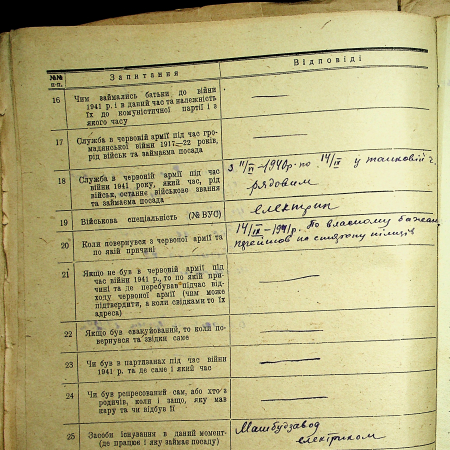 №№ п-п.
Запитання
Відповіді
16 Чим займались батьки до війни
1941 р. і в даний час та належність
їх до комуністичної партії і з
якого часу
17 Служба в червоній армії під час гро-
мадянської війни 1917—22 років,
рід військ та займаєма посада
18 Служба в червоній армії під час
війни 1941 року, який час, рід
військ, останнє військове звання
та займаєма посада
з 11/II-1940р. по 14/IX у танковій ч.
рядовим
19 Військова спеціальність (№ ВУС)
електрик
20 Коли повернувся з червоної армії та
по якій причині
14/IX-1941р. По власному бажан.
перейшов на сторону німців
21 Якщо не був в червоній армії під
час війни 1941 р., то по якій при-
чині та де перебував підчас від-
ходу червоної армії (чим може
підтвердити, а коли свідками то їх
адреса)
22 Якщо був евакуйований, то коли по-
вернувся та звідки саме
23 Чи був в партизанах під час війни
1941 р. та де саме і який час
24 Чи був репресований сам, або хто з
родичів, коли і защо, яку мав
кару та чи відбув її
25 Засоби існування в даний момент
(де працює і яку займає посаду)
Машбудзавод
електриком